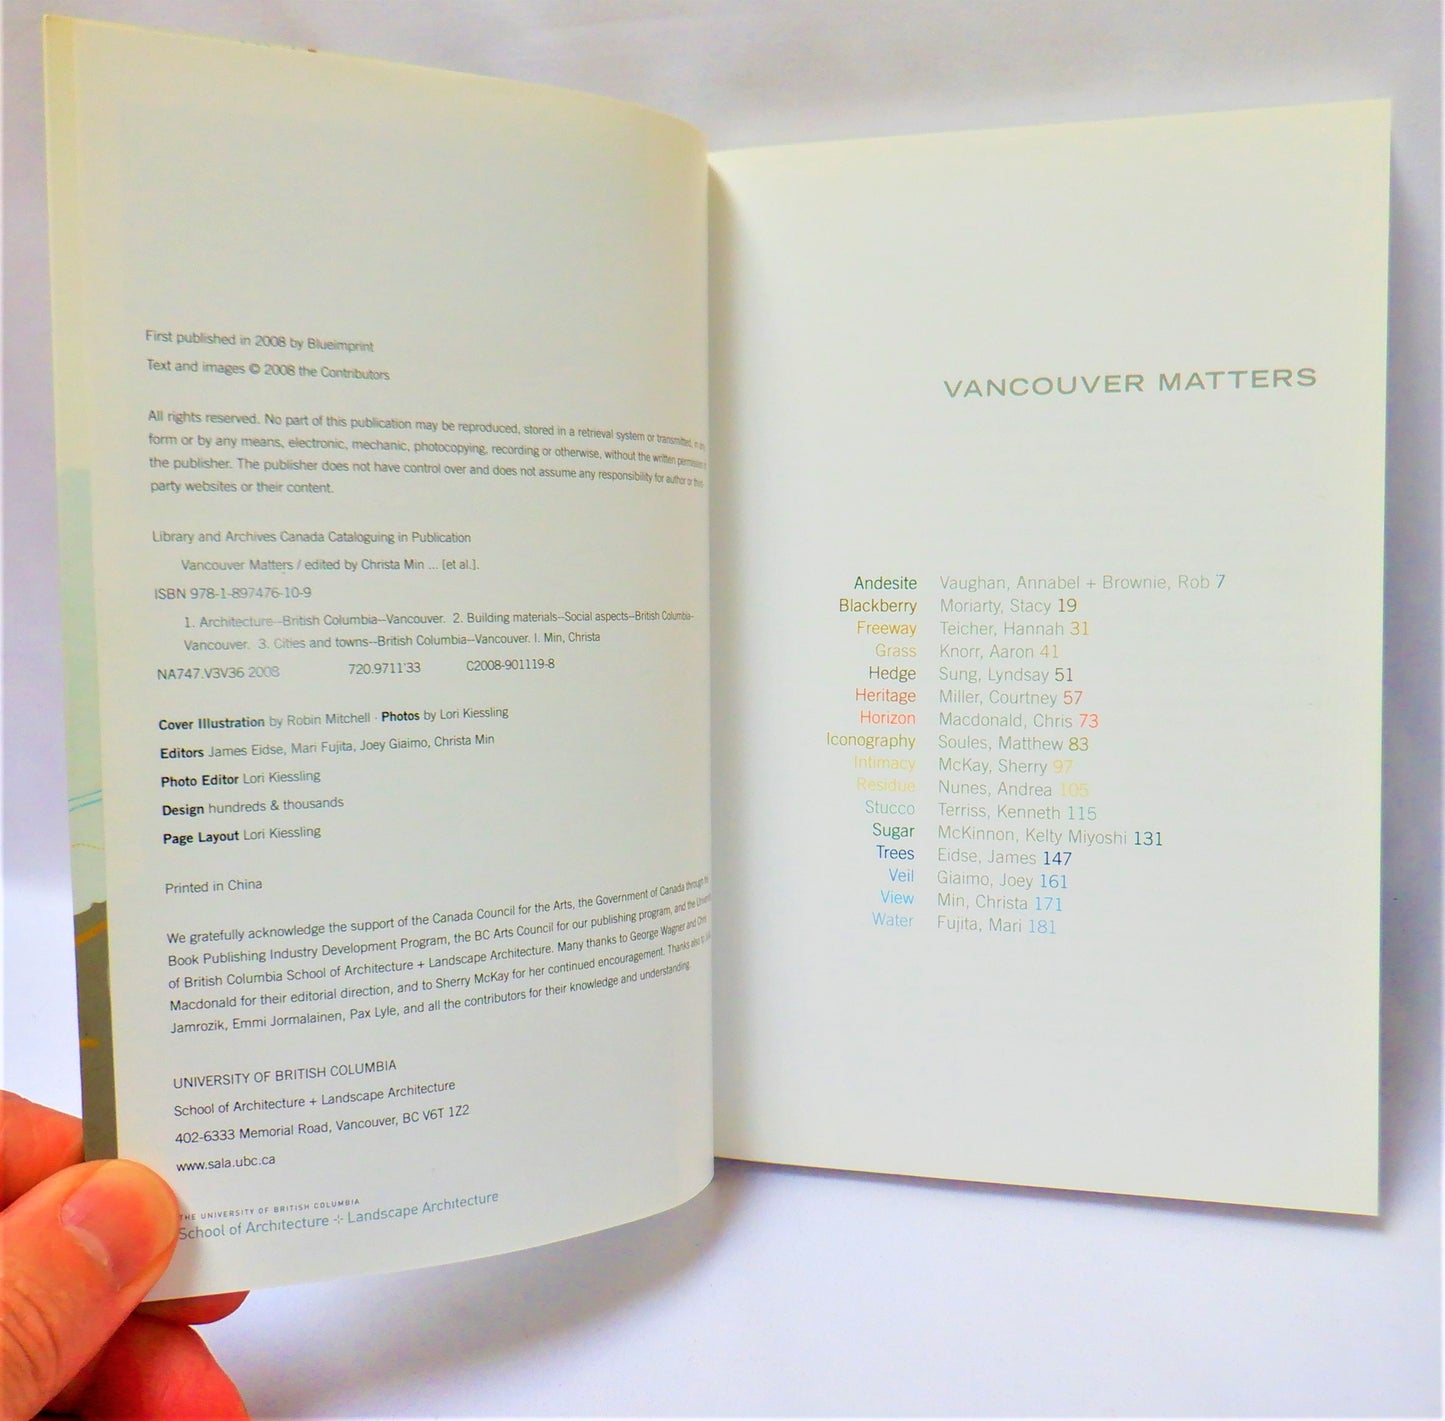 First published in 2008 by Blueimprint
Text and images © 2008 the Contributors
All rights reserved. No part of this publication may be reproduced, stored in a retrieval system or transmitted, in any
form or by any means, electronic, mechanic, photocopying, recording or otherwise, without the written permission of
the publisher. The publisher does not have control over and does not assume any responsibility for author or third-
party websites or their content.
Library and Archives Canada Cataloguing in Publication
Vancouver Matters / edited by Christa Min ... [et al.].
ISBN 978-1-897476-10-9
1. Architecture--British Columbia--Vancouver. 2. Building materials--Social aspects--British Columbia-
Vancouver. 3. Cities and towns--British Columbia--Vancouver. I. Min, Christa
NA747.V3V36 2008 720.9711'33 C2008-901119-8
Cover Illustration by Robin Mitchell · Photos by Lori Kiessling
Editors James Eidse, Mari Fujita, Joey Giaimo, Christa Min
Photo Editor Lori Kiessling
Design hundreds & thousands
Page Layout Lori Kiessling
Printed in China
We gratefully acknowledge the support of the Canada Council for the Arts, the Government of Canada through the
Book Publishing Industry Development Program, the BC Arts Council for our publishing program, and the University
of British Columbia School of Architecture + Landscape Architecture. Many thanks to George Wagner and Chris
Macdonald for their editorial direction, and to Sherry McKay for her continued encouragement. Thanks also to
Jamrozik, Emmi Jormalainen, Pax Lyle, and all the contributors for their knowledge and understanding.
UNIVERSITY OF BRITISH COLUMBIA
School of Architecture + Landscape Architecture
402-6333 Memorial Road, Vancouver, BC V6T 1Z2
www.sala.ubc.ca
THE UNIVERSITY OF BRITISH COLUMBIA
School of Architecture + Landscape Architecture
VANCOUVER MATTERS
Andesite Vaughan, Annabel + Brownie, Rob 7
Blackberry Moriarty, Stacy 19
Freeway Teicher, Hannah 31
Grass Knorr, Aaron 41
Hedge Sung, Lyndsay 51
Heritage Miller, Courtney 57
Horizon Macdonald, Chris 73
Iconography Soules, Matthew 83
Intimacy McKay, Sherry 97
Residue Nunes, Andrea 105
Stucco Terriss, Kenneth 115
Sugar McKinnon, Kelty Miyoshi 131
Trees Eidse, James 147
Veil Giaimo, Joey 161
View Min, Christa 171
Water Fujita, Mari 181